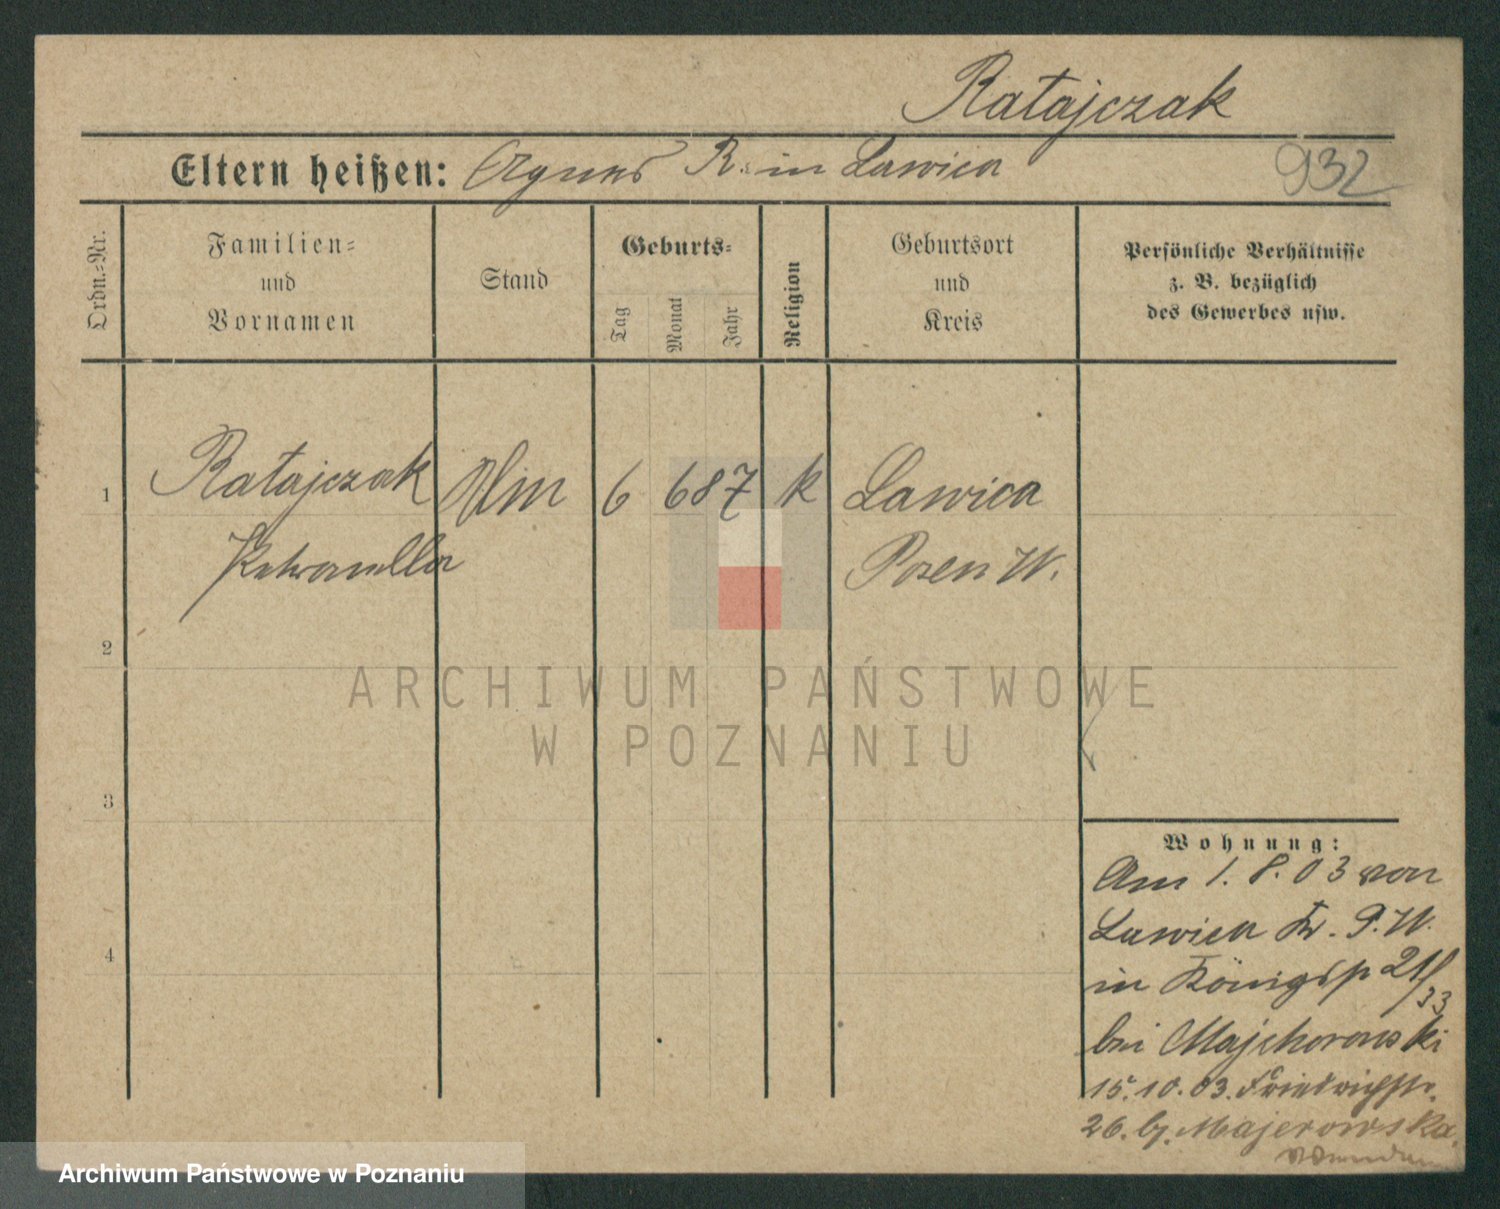 Ratajczak
Eltern heißen: Agnes R. in Lawica
932
Ordn.-Nr.
Familien-
und
Vornamen
Stand
Geburts-
Tag
Monat
Jahr
Religion
Geburtsort
und
Kreis
Persönliche Verhältnisse
z. B. bezüglich
des Gewerbes usw.
1
Ratajczak
6
6 87
k
Lawica
Petronella
Posen W.
2
ARCHIWUM PAŃSTWOWE
W POZNANIU
3
Wohnung:
Am 1. 8. 03 von
Lawica Kr. P. W.
4
in Königsp 21/33
bei Majchorowski
15.10.03. Friedrichstr.
26. b. Majerowska.
Archiwum Państwowe w Poznaniu